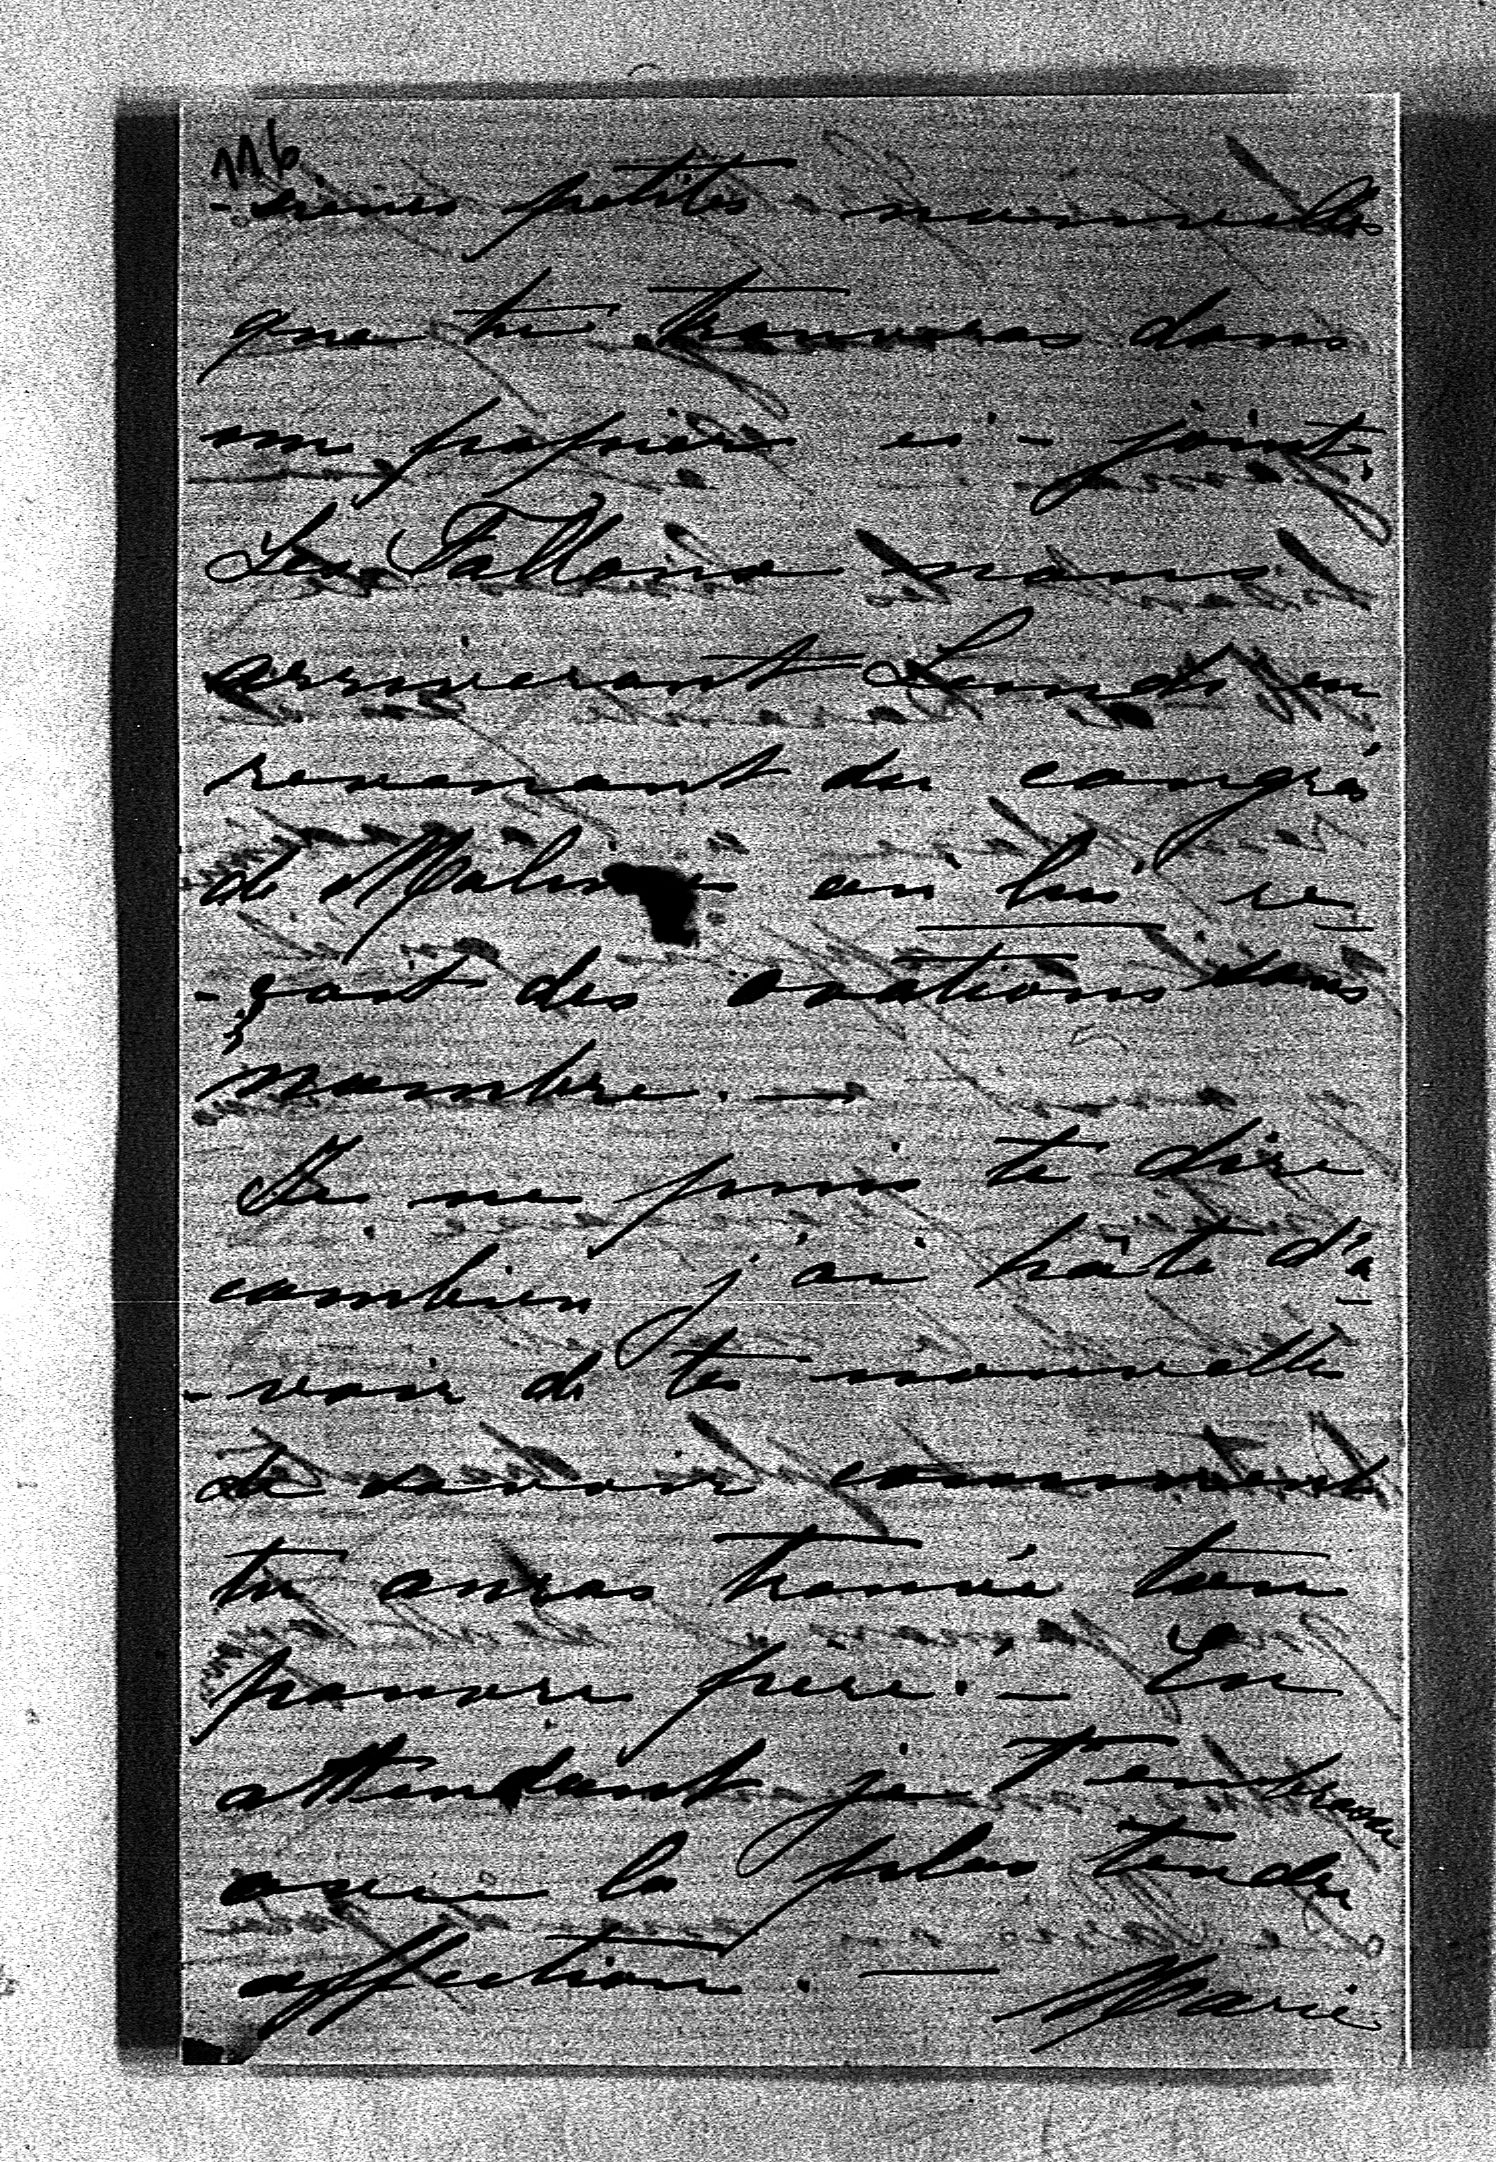 116
- sieurs petites nouvelles
que tu trouveras dans
un papier ci-joint.
Les Fallonx nous
arriveront Lundi en
revenant du congrès
de Malines où lui re
- çoit des ovations sans
nombre. —
Je ne puis te dire
combien j'ai hâte d'a
- voir de tes nouvelles
de savoir comment
tu auras trouvé ton
pauvre père. — En
attendant je t'embrasse
avec la plus tendre
affection. — Marie